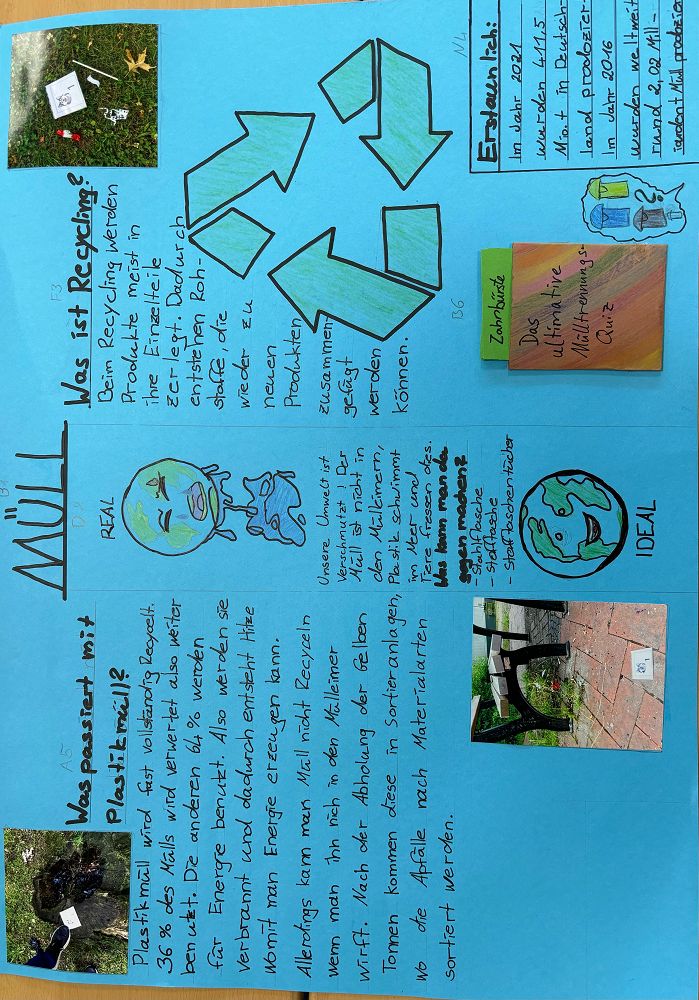 MÜLL
Was passiert mit
Plastikmüll?
Plastikmüll wird fast vollständig Recycelt.
36 % des Mülls wird verwertet also weiter
benutzt. Die anderen 64 % werden
für Energie benutzt. Also werden sie
verbrannt und dadurch entsteht Hitze
womit man Energie erzeugen kann.
Allerdings kann man Müll nicht Recyceln
wenn man ihn nich in den Mülleimer
wirft. Nach der Abholung der Gelben
Tonnen kommen diese in Sortieranlagen,
wo die Abfälle nach Materialarten
sortiert werden.
REAL
Unsere Umwelt ist
verschmutzt! Der
Müll ist nicht in
den Mülleimern,
Plastik schwimmt
im Meer und
Tiere fressen dies.
Was kann man da
gegen machen?
- Stahlflasche
- Stofftasche
- Stofftaschentücher
IDEAL
Was ist Recycling?
Beim Recycling werden
Produkte meist in
ihre Einzelteile
zerlegt. Dadurch
entstehen Roh-
stoffe, die
wieder zu
neuen
Produkten
zusammen
gefügt
werden
können.
Zahnbürste
Das
ultimative
Mülltrennungs-
Quiz
?
Erstaunlich:
Im Jahr 2021
wurden 411,5
Miot in Deutsch-
land prodozier-
Im Jahr 2016
wurden weltweit
rund 2,02 Mill-
iardent Müll prodozier